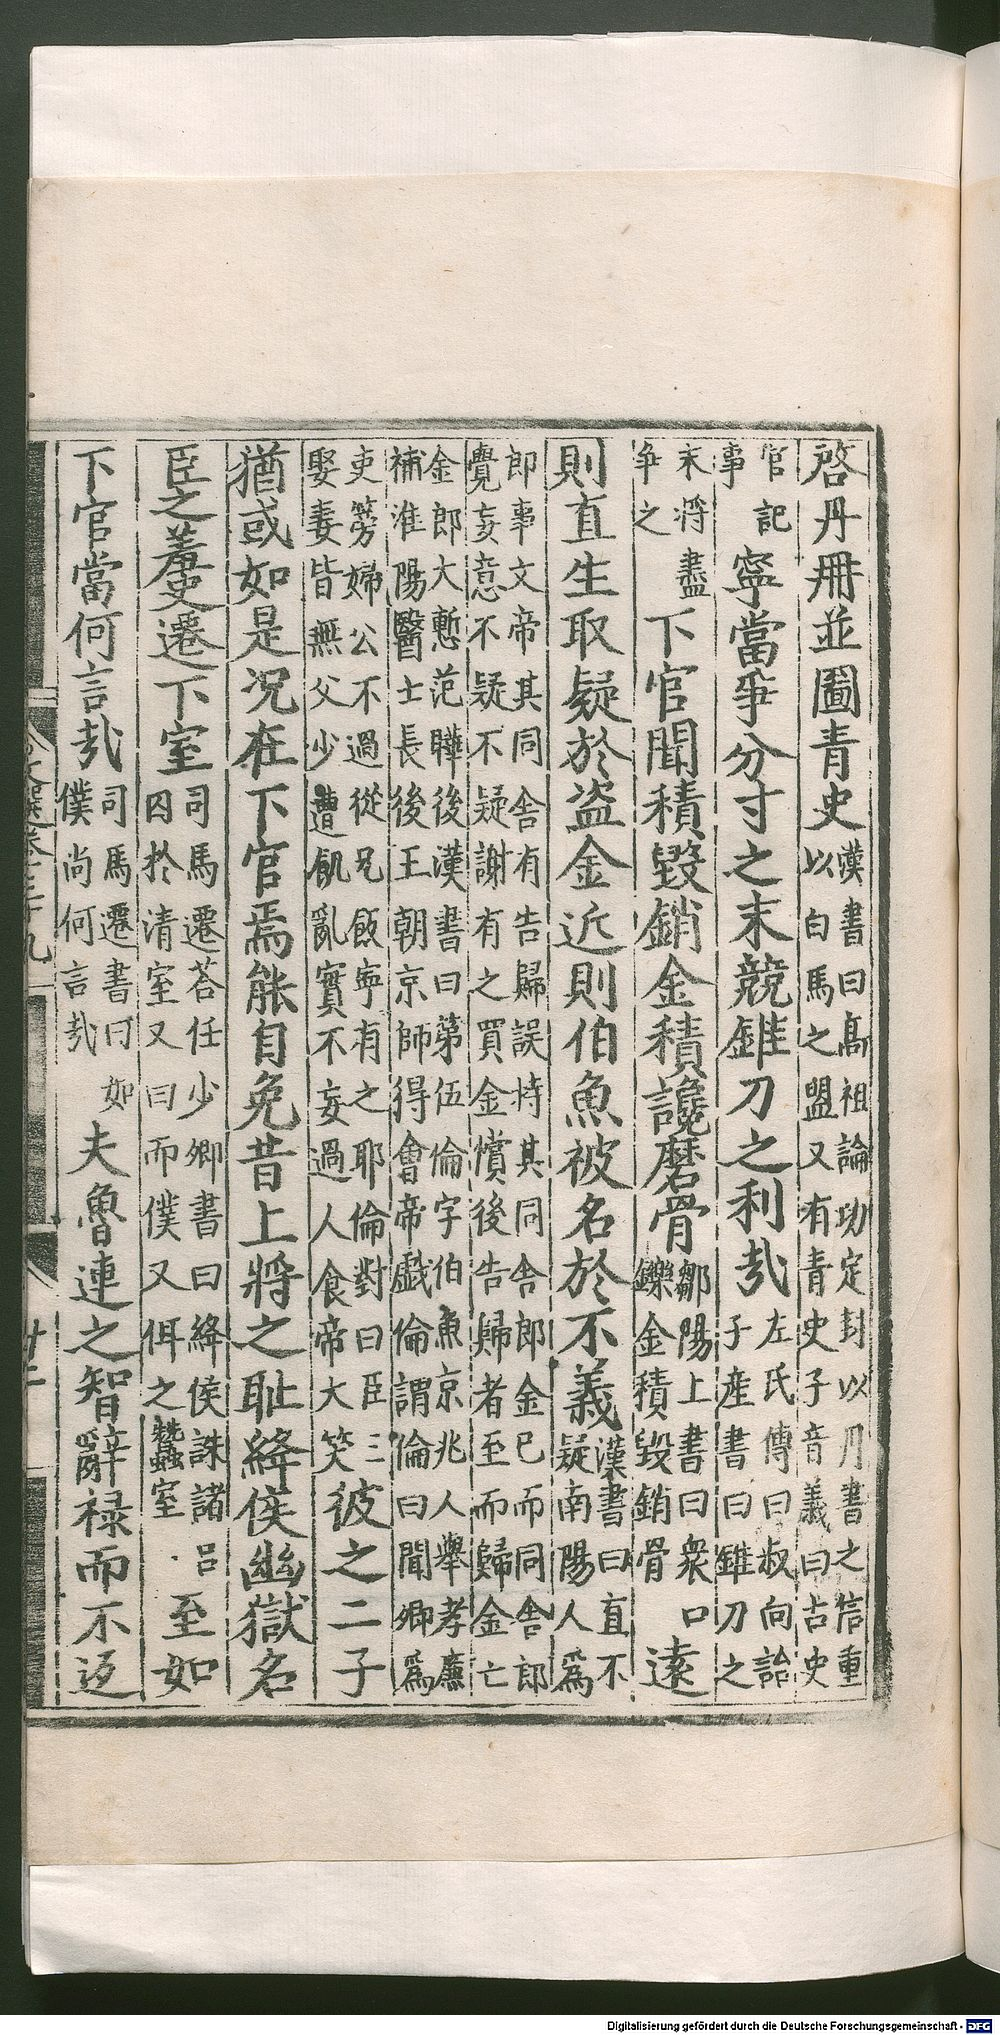 啓丹冊並圖青史漢書曰髙祖論功定封以丹書之信重
以白馬之盟又有青史子音義曰古史
官記
事寧當爭分寸之末競錐刀之利㢤左氏傳曰叔向詒
子産書曰錐刀之
末將盡
爭之下官聞積毀銷金積讒磨骨鄒陽上書曰衆口
鑠金積毀銷骨遠
則直生取疑於盜金近則伯魚被名於不義漢書曰直不
疑南陽人爲
郎事文帝其同舎有告歸誤持其同舎郎金已而同舎郎
覺妄意不疑不疑謝有之買金償後告歸者至而歸金亡
金郎大慙范曄後漢書曰第伍倫字伯魚京兆人舉孝廉
補淮陽醫士長後王朝京師得會帝戲倫謂倫曰聞卿爲
吏篣婦公不過從兄飯寧有之耶倫對曰臣三
娶妻皆無父少遭飢亂實不妄過人食帝大笑彼之二子
猶或如是况在下官焉能自免昔上將之耻絳侯幽獄名
臣之羞史遷下室司馬遷荅任少卿書曰絳侯誅諸吕
囚扵清室又曰而僕又佴之蠶室至如
下官當何言㢤司馬遷書曰如
僕尚何言㢤夫魯連之智辭禄而不返